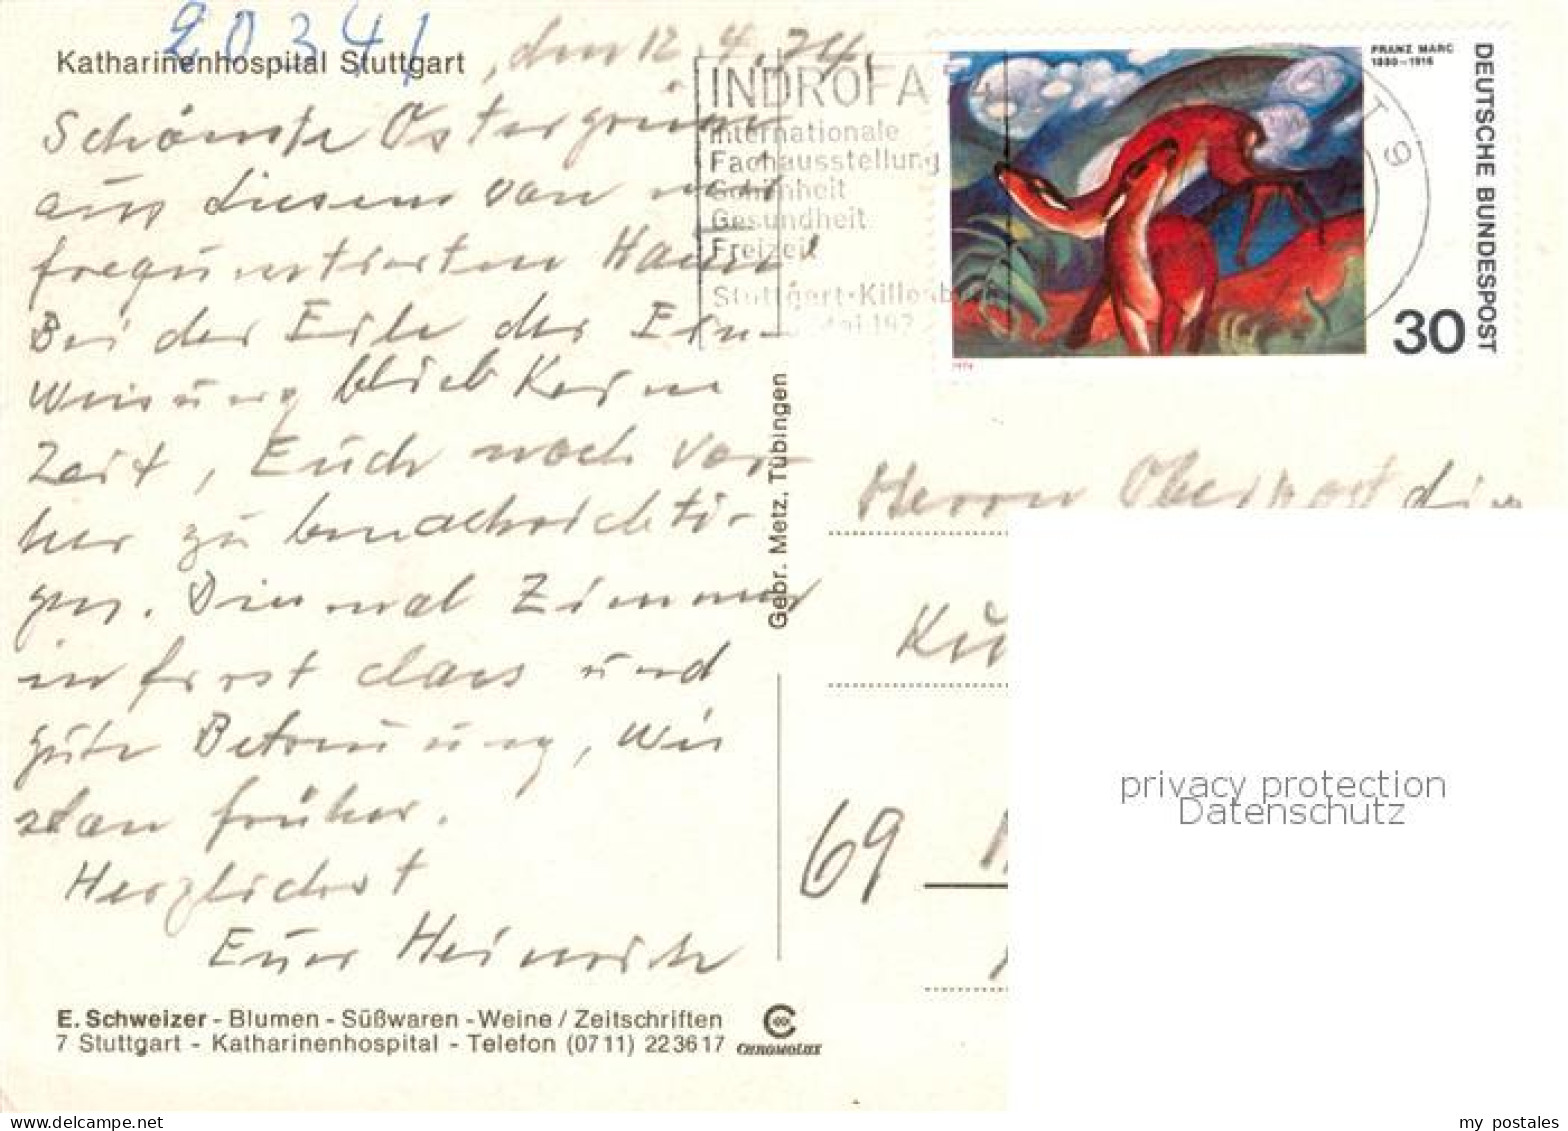 20341
Katharinenhospital Stuttgart, den 12.4.74.
Schönste Ostergrüße
aus diesem von mir
frequentierten Haus!
Bei der Eile der Ein-
weisung blieb keine
Zeit, Euch noch vor-
her zu benachrichti-
gen. Diesmal Zimmer
in first class und
gute Betreuung, wie
stan früher.
Herzlichst
Euer Heinrich
E. Schweizer - Blumen - Süßwaren - Weine / Zeitschriften
7 Stuttgart - Katharinenhospital - Telefon (0711) 223617
CHROMOLUX
Gebr. Metz, Tübingen
INDROFA 74
Internationale
Fachausstellung
Schönheit
Gesundheit
Freizeit
Stuttgart-Killesb
Mai 197
FRANZ MARC
1880-1916
DEUTSCHE BUNDESPOST
30
1974
T 9
Herrn Oberpostdir
Ku
69
privacy protection
Datenschutz
my postales